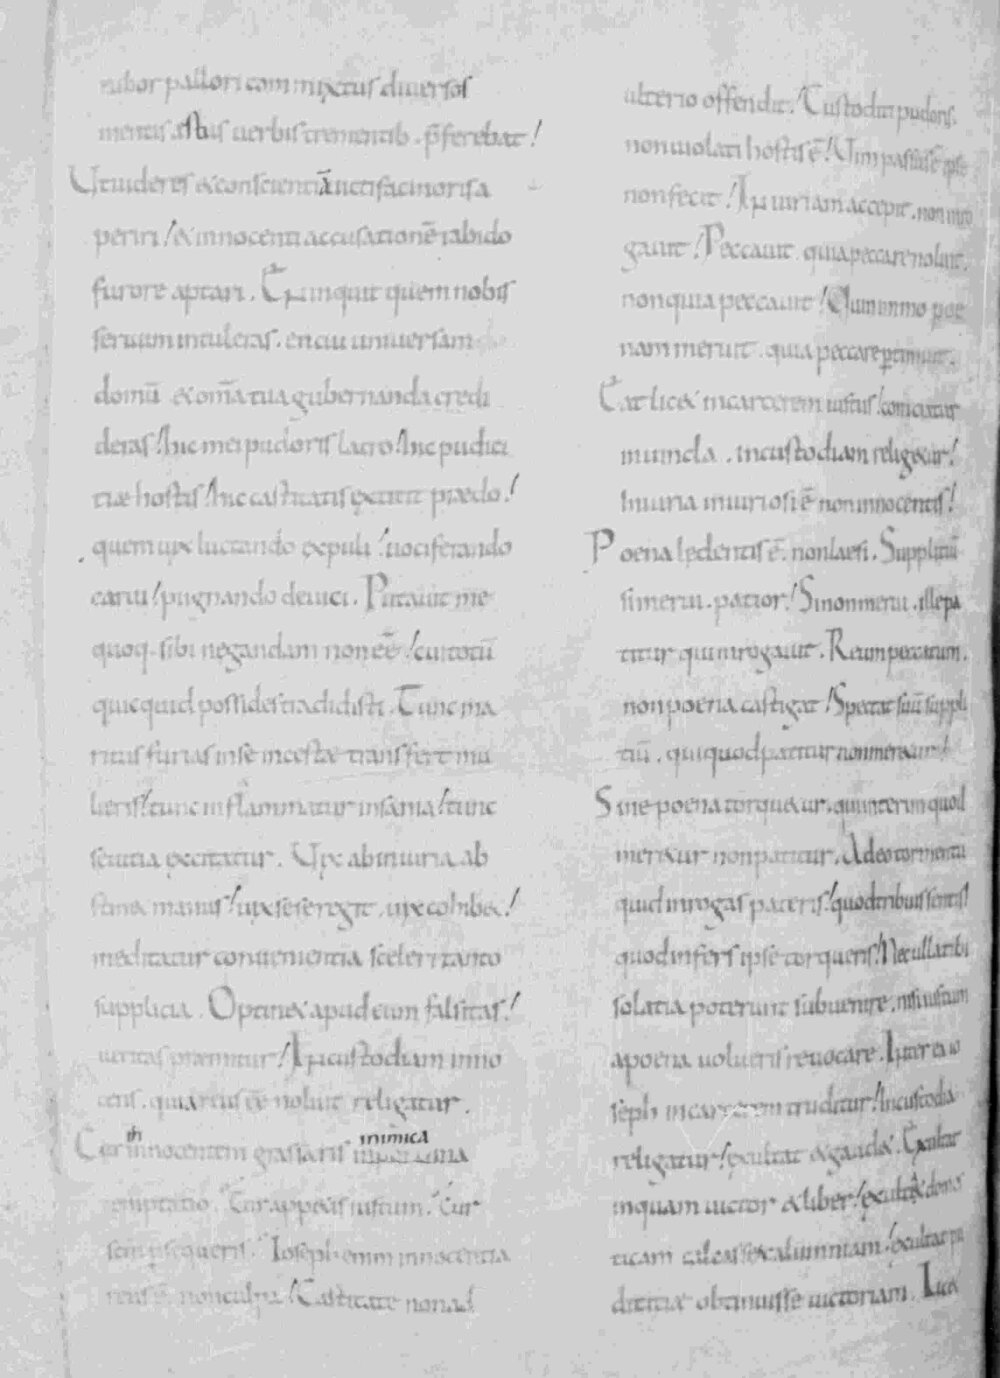 rubor pallori commixtus diuersos
mentis æstus uerbis trementib. p̄ferebat!
Ut uideres & conscientiā uicti facinoris a
periri! & innocenti accusationē rabido
furore aptari. En inquit quem nobis
seruum intuleras. en cui uniuersam
domū & om̄a tua gubernanda credi
deras! hic mei pudoris latro! hic pudici
tiæ hostis! hic castitatis extitit prædo!
quem uix luctando expuli! uociferando
carui! pugnando deuici. Putauit me
quoq. sibi negandam non eē! cui totū
quicquid possides tradidisti. Tunc ma
ritus furias in se incestæ transfert mu
lieris! tunc inflammatur insania! tunc
seuitia excitatur. Uix ab iniuria ab
stin& manus! uix se se regit. uix cohib&!
meditatur conuenientia sceleri tanto
supplicia. Optin& apud eum falsitas!
ueritas præmitur! In custodiam inno
cens. quia reus eē noluit religatur.
Cur innocentem grassaris inimica
temptatio. Cur app&is iustum. Cur
persequeris. Ioseph enim innocentia
reus ē. non culpa! Castitate non ad
ulterio offendit! Custodit pudoris.
non uiolati hostis ē! Uim passus ē ipse
non fecit! In iuriam accepit. non inro
gauit! Peccauit quia peccare noluit.
non quia peccauit! Quin immo poe
nam meruit. quia peccare pertimuit.
Et lic& in carcerem iustus! coniciatur
in uincla. in custodiam relig&ur!
Iniuria iniuriosi ē non innocentis!
Poena lędentis ē. non laesi. Suppliciū
si merui. patior! Si non merui. ille pa
titur qui inrogauit. Reum peccatum.
non poena castigat! Spectat suū suppli
tiū. qui quod patitur non mereatur!
Sine poena torqu&ur. qui interim quod
mer&ur non patitur. Adeo tormentū
quid inrogas pateris! quod tribuis sentis!
quod infers ipse torqueris! Nec ulla tibi
solatia poterunt subuenire. nisi iustum
a poena uolueris reuocare. Inter ea io
seph in carcerem truditur! In custodia
religatur! exultat & gaud&. Exultat
inquam uictor & liber! exult&
ticam calcasse calumniam! exultat pu
dicitiæ obtinuisse uictoriam. Lic&